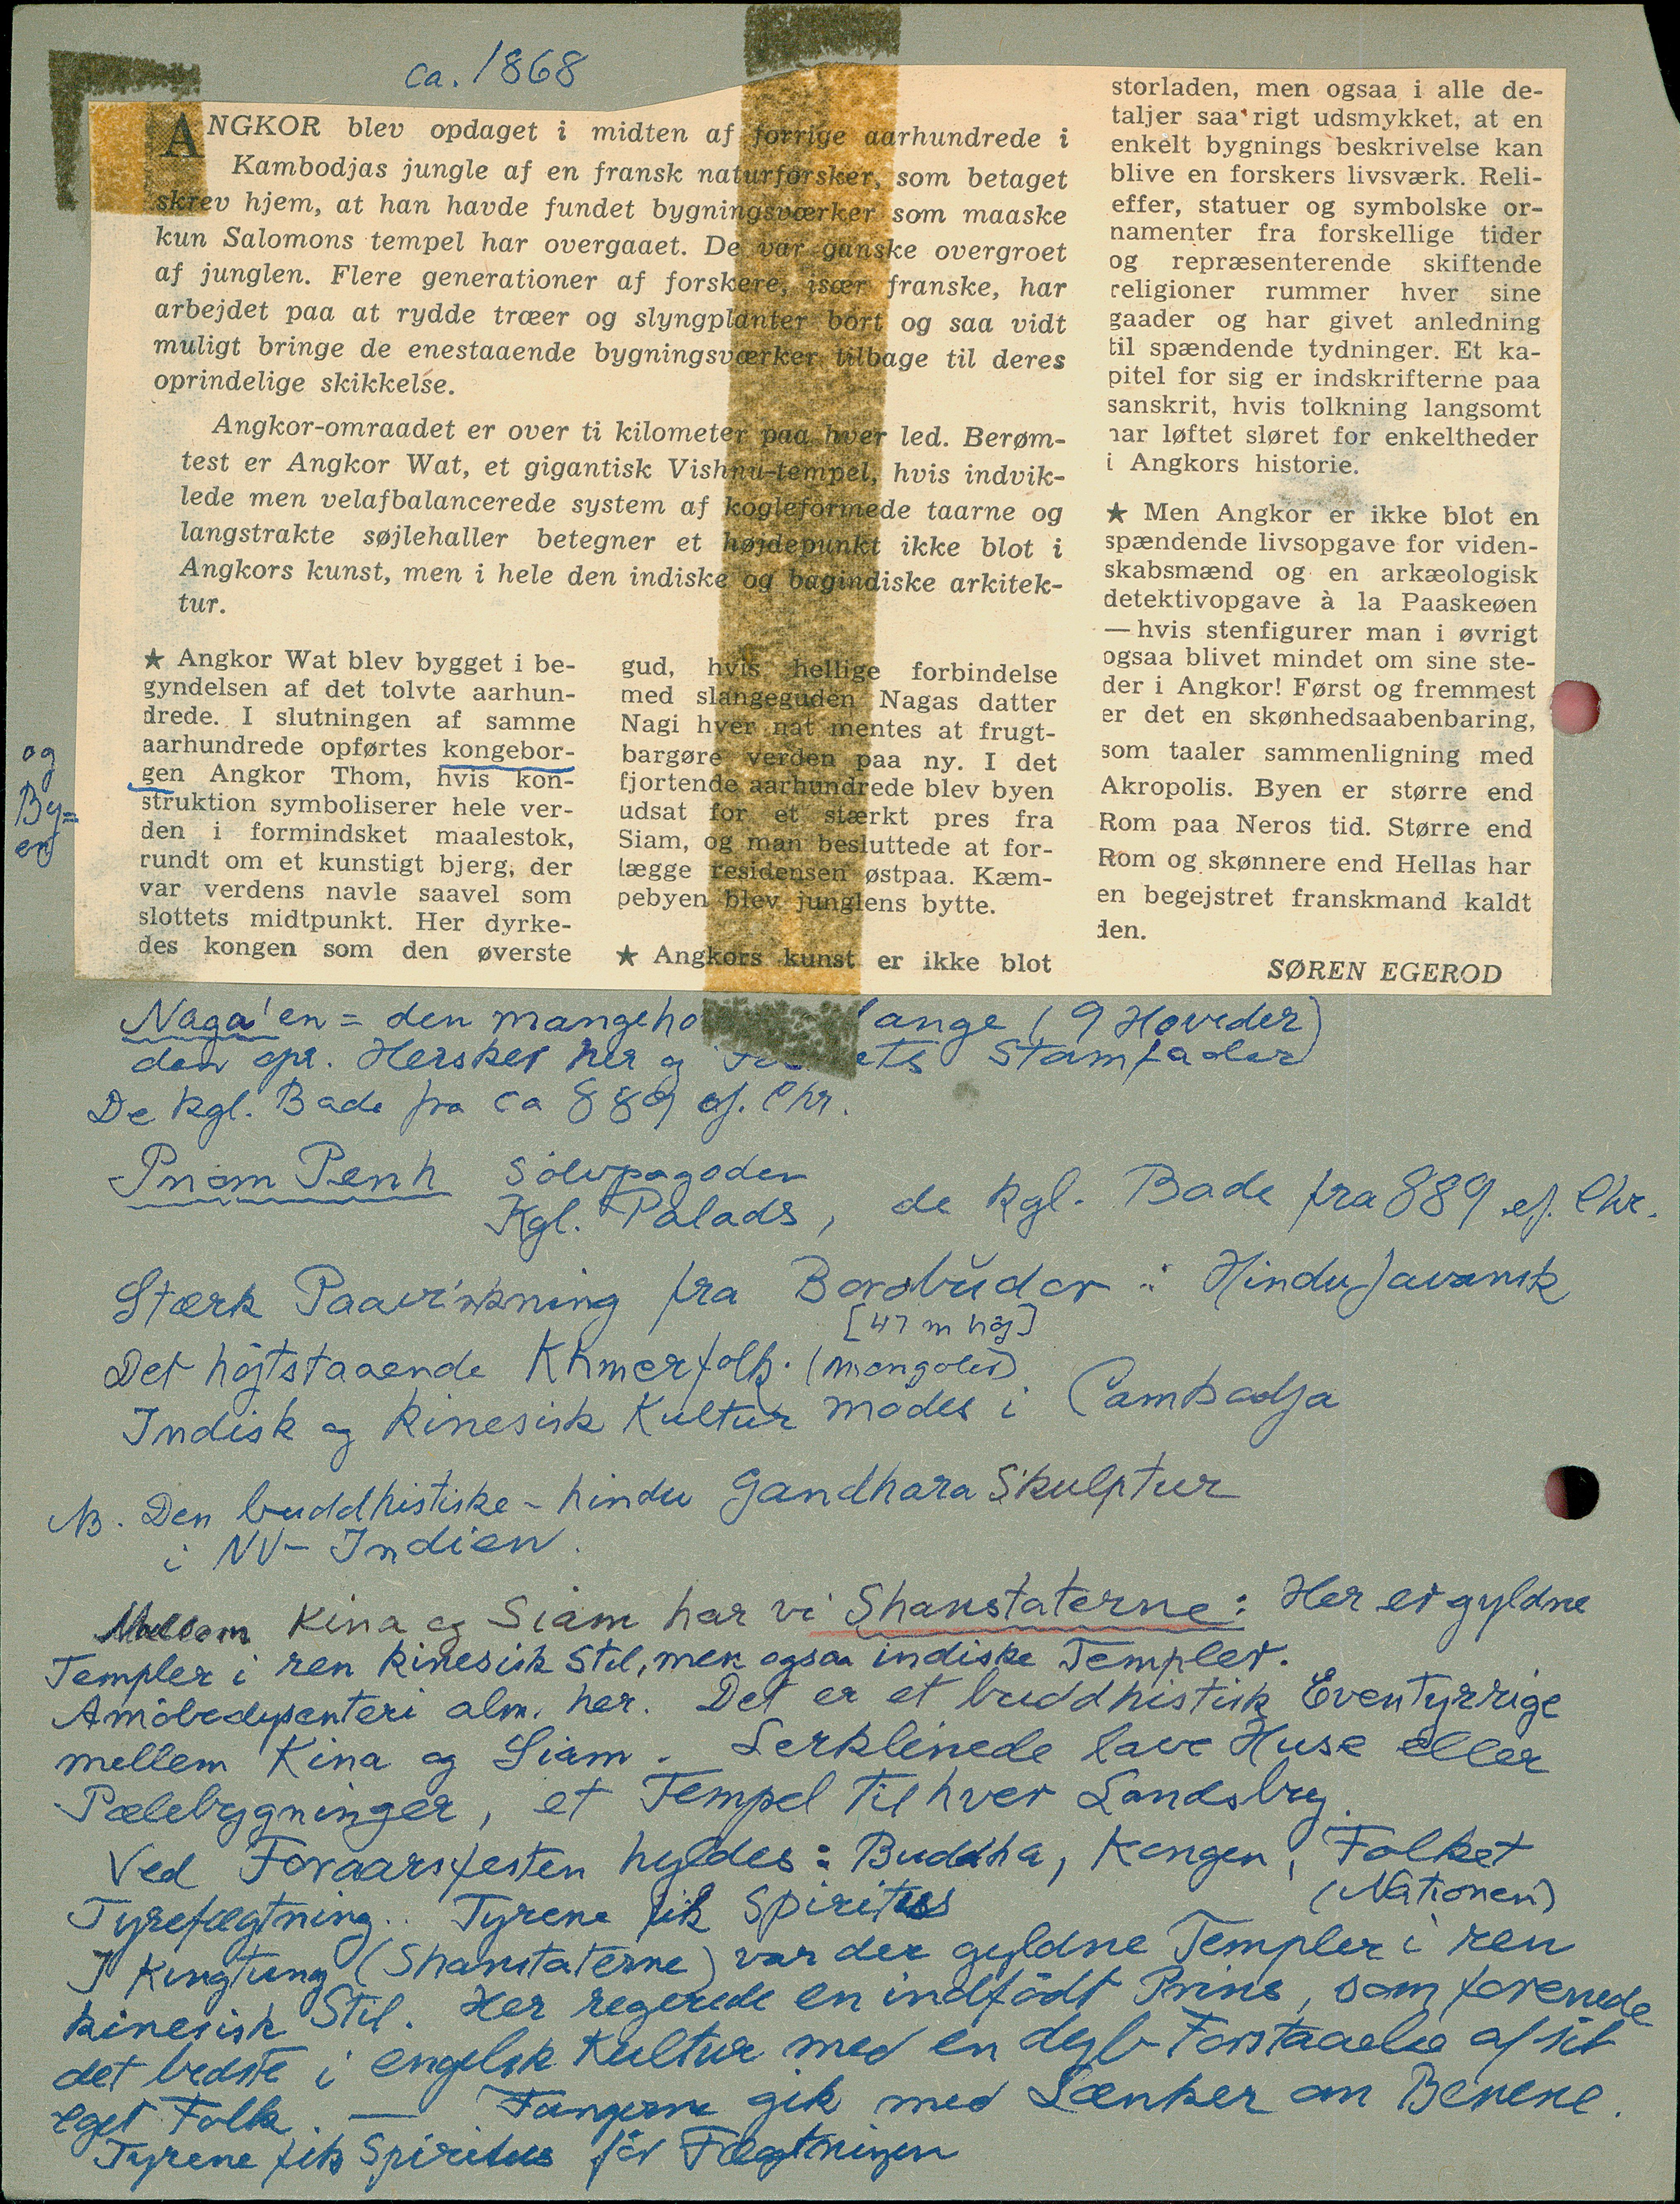 ca. 1868
ANGKOR blev opdaget i midten af forrige aarhundrede i
Kambodjas jungle af en fransk naturforsker, som betaget
skrev hjem, at han havde fundet bygningsværker som maaske
kun Salomons tempel har overgaaet. De var ganske overgroet
af junglen. Flere generationer af forskere, især franske, har
arbejdet paa at rydde træer og slyngplanter bort og saa vidt
muligt bringe de enestaaende bygningsværker tilbage til deres
oprindelige skikkelse.
Angkor-omraadet er over ti kilometer paa hver led. Berøm-
test er Angkor Wat, et gigantisk Vishnu-tempel, hvis indvik-
lede men velafbalancerede system af kogleformede taarne og
langstrakte søjlehaller betegner et højdepunkt ikke blot i
Angkors kunst, men i hele den indiske og bagindiske arkitek-
tur.
★ Angkor Wat blev bygget i be-
gyndelsen af det tolvte aarhun-
drede. I slutningen af samme
aarhundrede opførtes kongebor-
gen Angkor Thom, hvis kon-
struktion symboliserer hele ver-
den i formindsket maalestok,
rundt om et kunstigt bjerg, der
var verdens navle saavel som
slottets midtpunkt. Her dyrke-
des kongen som den øverste
og
By=
en
gud, hvis hellige forbindelse
med slangeguden Nagas datter
Nagi hver nat mentes at frugt-
bargøre verden paa ny. I det
fjortende aarhundrede blev byen
udsat for et stærkt pres fra
Siam, og man besluttede at for-
lægge residensen østpaa. Kæm-
pebyen blev junglens bytte.
★ Angkors kunst er ikke blot
storladen, men ogsaa i alle de-
taljer saa rigt udsmykket, at en
enkelt bygnings beskrivelse kan
blive en forskers livsværk. Reli-
effer, statuer og symbolske or-
namenter fra forskellige tider
og repræsenterende skiftende
religioner rummer hver sine
gaader og har givet anledning
til spændende tydninger. Et ka-
pitel for sig er indskrifterne paa
sanskrit, hvis tolkning langsomt
har løftet sløret for enkeltheder
i Angkors historie.
★ Men Angkor er ikke blot en
spændende livsopgave for viden-
skabsmænd og en arkæologisk
detektivopgave à la Paaskeøen
— hvis stenfigurer man i øvrigt
ogsaa blivet mindet om sine ste-
der i Angkor! Først og fremmest
er det en skønhedsaabenbaring,
som taaler sammenligning med
Akropolis. Byen er større end
Rom paa Neros tid. Større end
Rom og skønnere end Hellas har
en begejstret franskmand kaldt
den.
SØREN EGEROD
Naga'en = den mangeho lange (9 Hoveder)
den opr. Hersker her og ets Stamfader
De kgl. Bade fra ca 889 ef. Chr.
Pnom Penh Sölvpagoden
Kgl. Palads, de kgl. Bade fra 889 ef. Chr.
Stærk Paavirkning fra Borobudor : HinduJavansk
[47 m höj]
Det höjtstaaende Khmerfolk. (mongoler)
Indisk og kinesisk Kultur mödes i Cambodja
NB. Den buddhistiske - hindu Gandhara Skulptur
i NV- Indien.
Mellem Kina og Siam har vi Shanstaterne: Her er gyldne
Templer i ren kinesisk Stil, men ogsaa indiske Templer.
Amöbedysenteri alm. her. Det er et buddhistisk Eventyrrige
mellem Kina og Siam. Lerklinede lave Huse eller
Pælebygninger, et Tempel til hver Landsby.
Ved Foraarsfesten hyldes : Buddha, Kongen, Folket
(Nationen)
Tyrefægtning.. Tyrene fik Spiritus
I Kengtung (Shanstaterne) var der gyldne Templer i ren
kinesisk Stil. Her regerede en indfödt Prins, som forenede
det bedste i engelsk Kultur med en dyb Forstaaelse af sit
eget Folk. — Fangerne gik med Lænker om Benene.
Tyrene fik Spiritus för Fægtningen